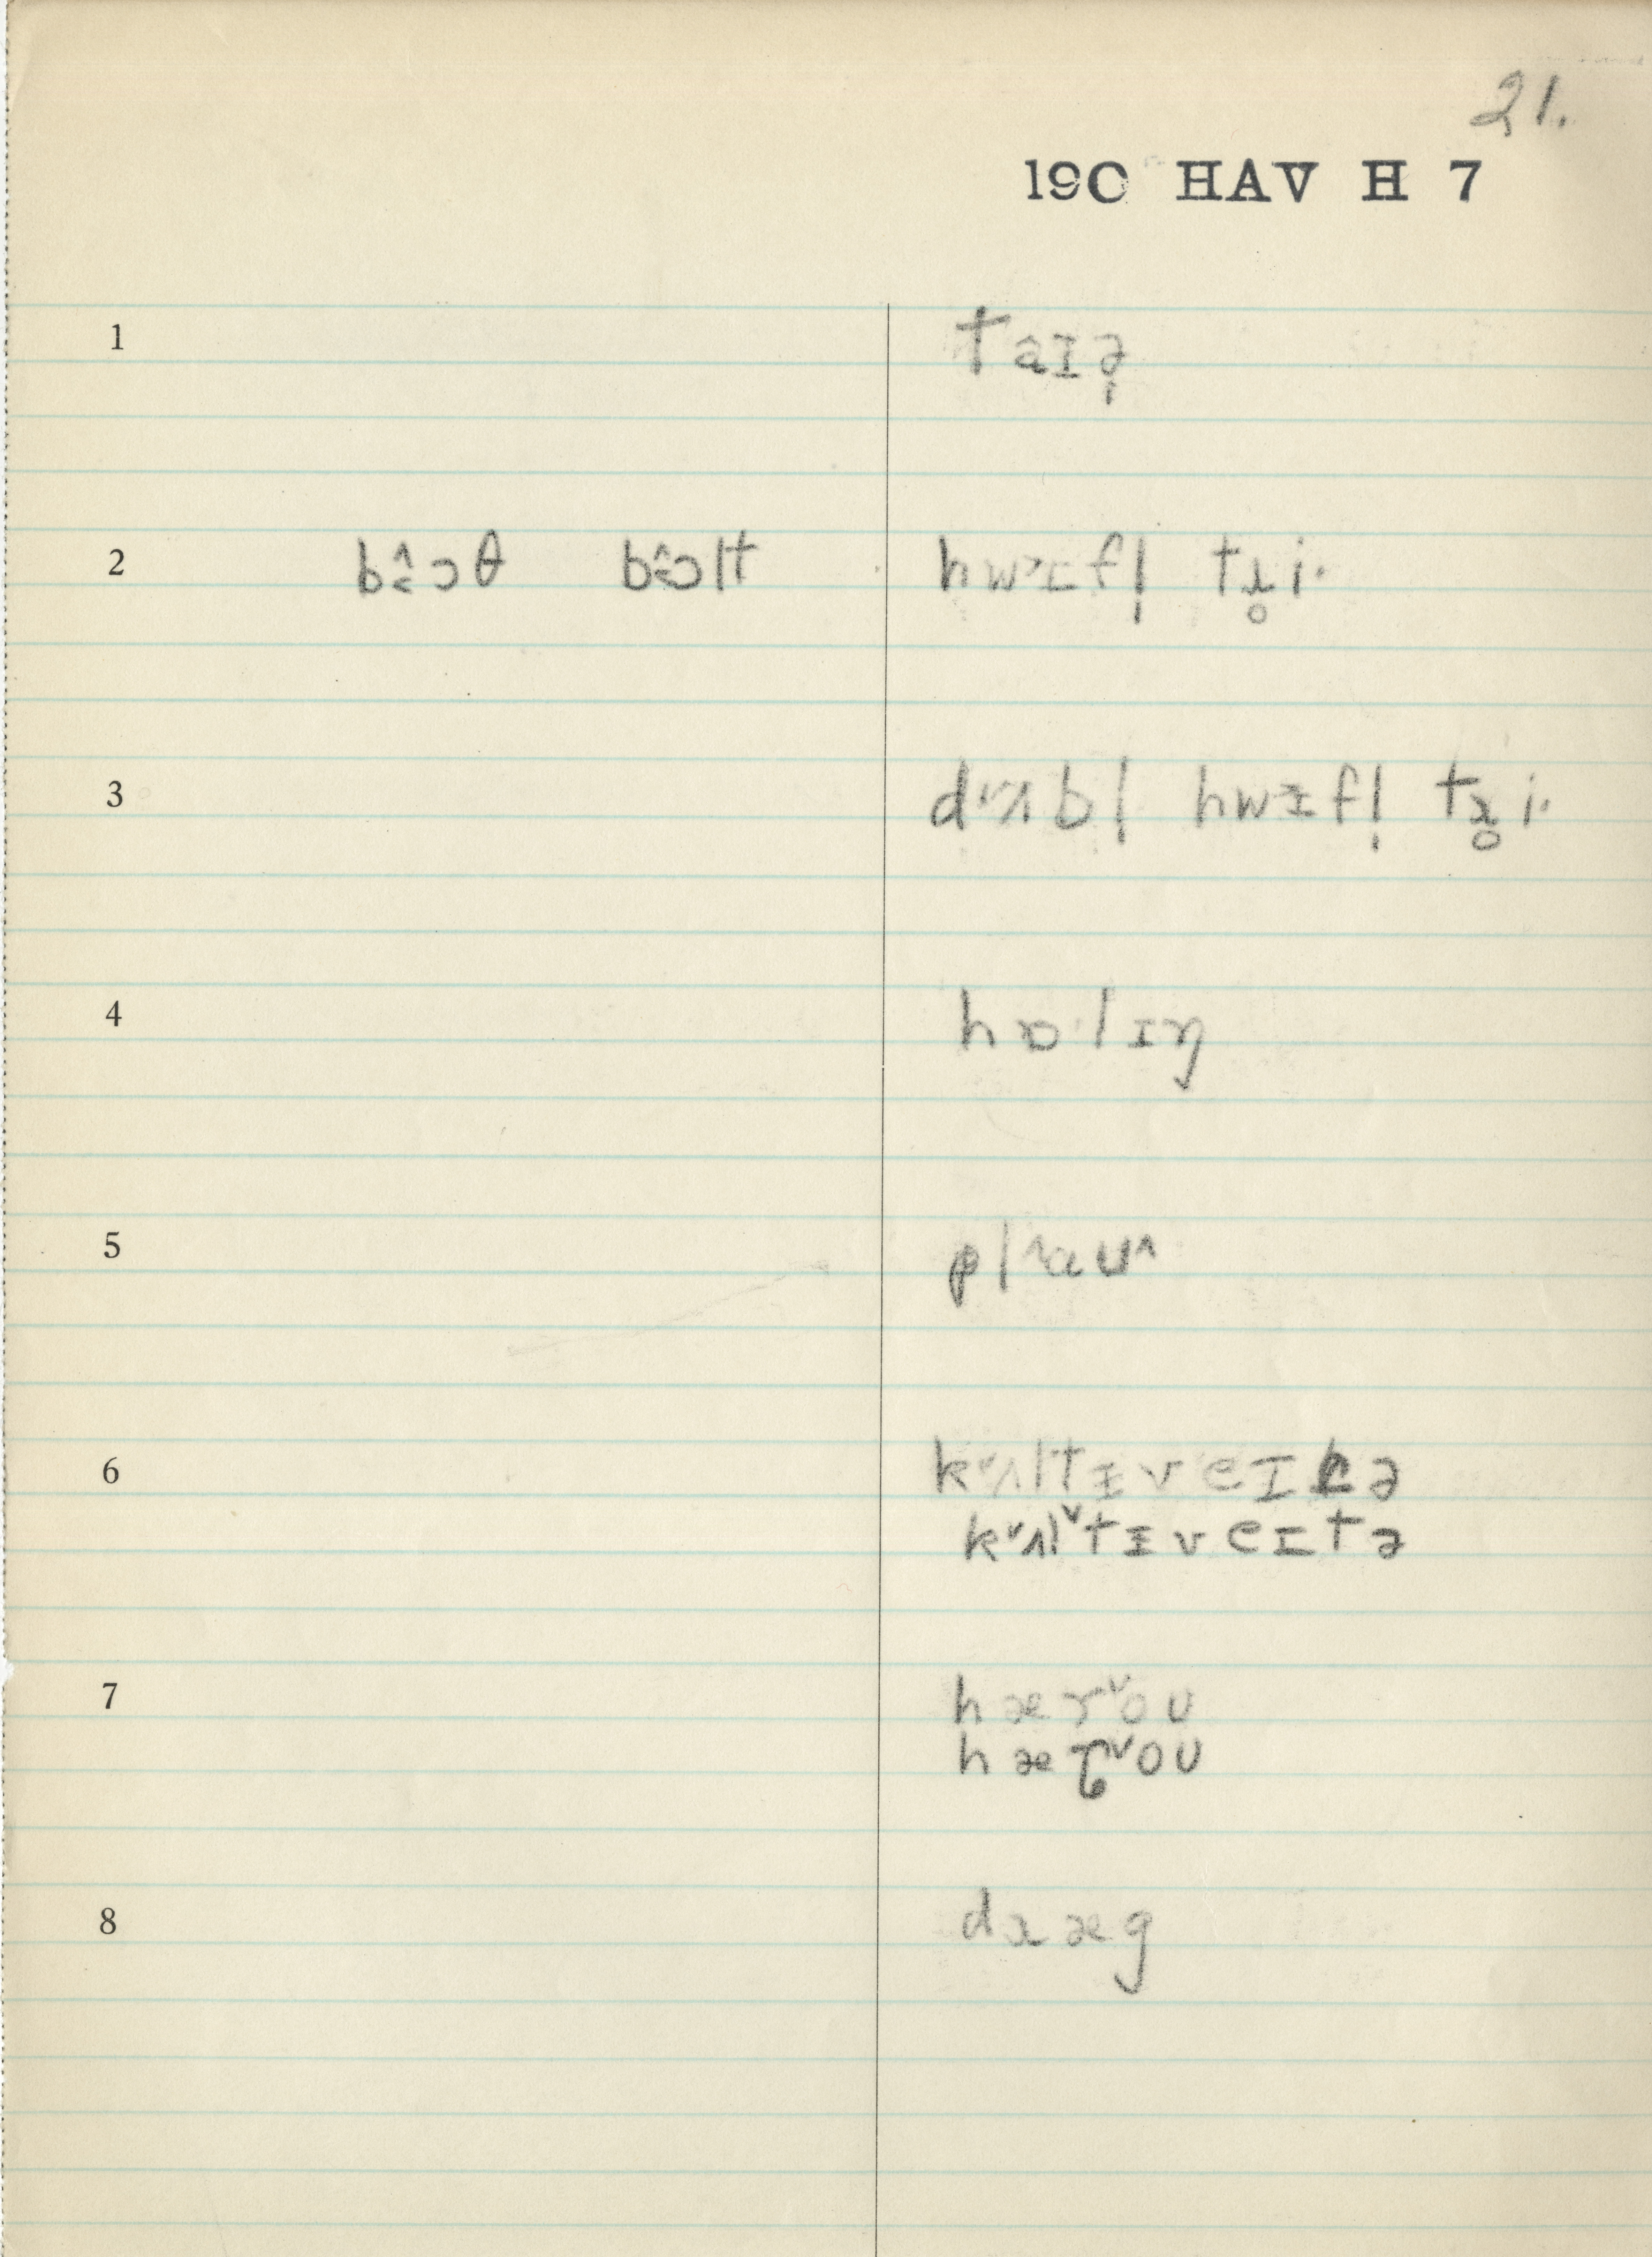 21.
190 HAV H 7
1 taɪə̩
2 bɔ̂ɔθ bɔ̂ɔlt hw˃ɪfl̩ tɹ̥i·
3 d˅ʌbl hwɪfl̩ tɹ̥i·
4 hɒ·lɪŋ
5 pl˄aʊ˄
6 k˅ʌltɪveɪtə
k˅ʌl˅tɪveɪtə
7 hær˅oʊ
hæɽ˅oʊ
8 dɹæg